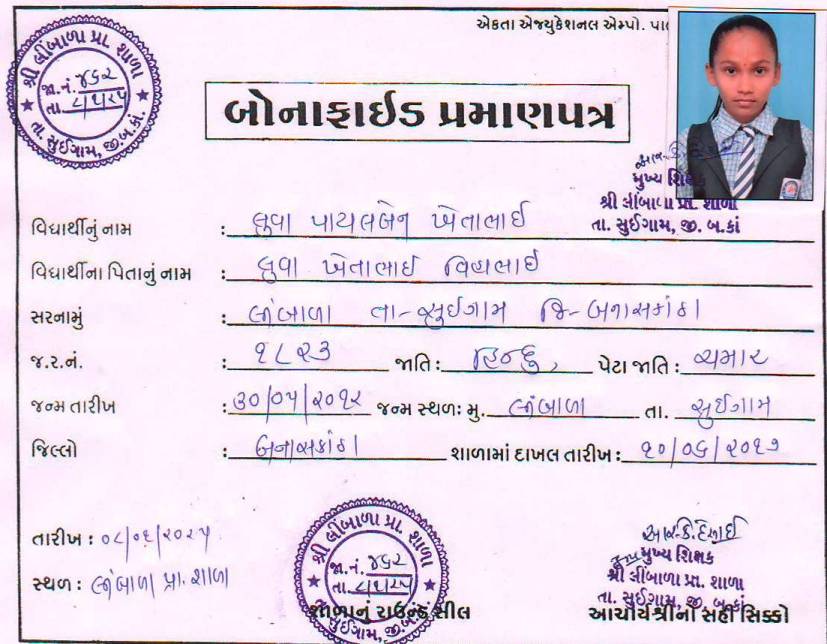 એકતા એજ્યુકેશનલ એમ્પો. પા
શ્રી લીંબાળા પ્રા. શાળા
જા.નં. ૪૬૨
તા. ૮/૧/૨૫
તા. સુઈગામ, જી.બ.કાં.
બોનાફાઈડ પ્રમાણપત્ર
મુખ્ય શિક્ષક
શ્રી લીંબાળા પ્રા. શાળા
તા. સુઈગામ, જી. બ.કાં
વિદ્યાર્થીનું નામ : લુવા પાયલબેન ખેતાભાઈ
વિદ્યાર્થીના પિતાનું નામ : લુવા ખેતાભાઈ
સરનામું : લીંબાળા તા-સુઈગામ જિ-બનાસકાંઠા
જ.ર.નં. : ૧૮૨૩ જાતિ : હિન્દુ, પેટા જાતિ : ચમાર
જન્મ તારીખ : ૩૦/૦૫/૨૦૧૨ જન્મ સ્થળઃ મુ. લીંબાળા તા. સુઈગામ
જિલ્લો : બનાસકાંઠા શાળામાં દાખલ તારીખ : ૧૦/૦૬/૨૦૧૭
તારીખ : ૦૮/૦૧/૨૦૨૫
સ્થળ : લીંબાળા પ્રા. શાળા
શ્રી લીંબાળા પ્રા. શાળા
જા.નં. ૪૬૨
તા. ૮/૧/૨૫
તા. સુઈગામ, જી.બ.કાં.
શાળાનું રાઉન્ડ સીલ
આર.કે.દેસાઈ
મુખ્ય શિક્ષક
શ્રી લીંબાળા પ્રા. શાળા
તા. સુઈગામ, જી. બ.કાં
આચાર્યશ્રીની સહી સિક્કો